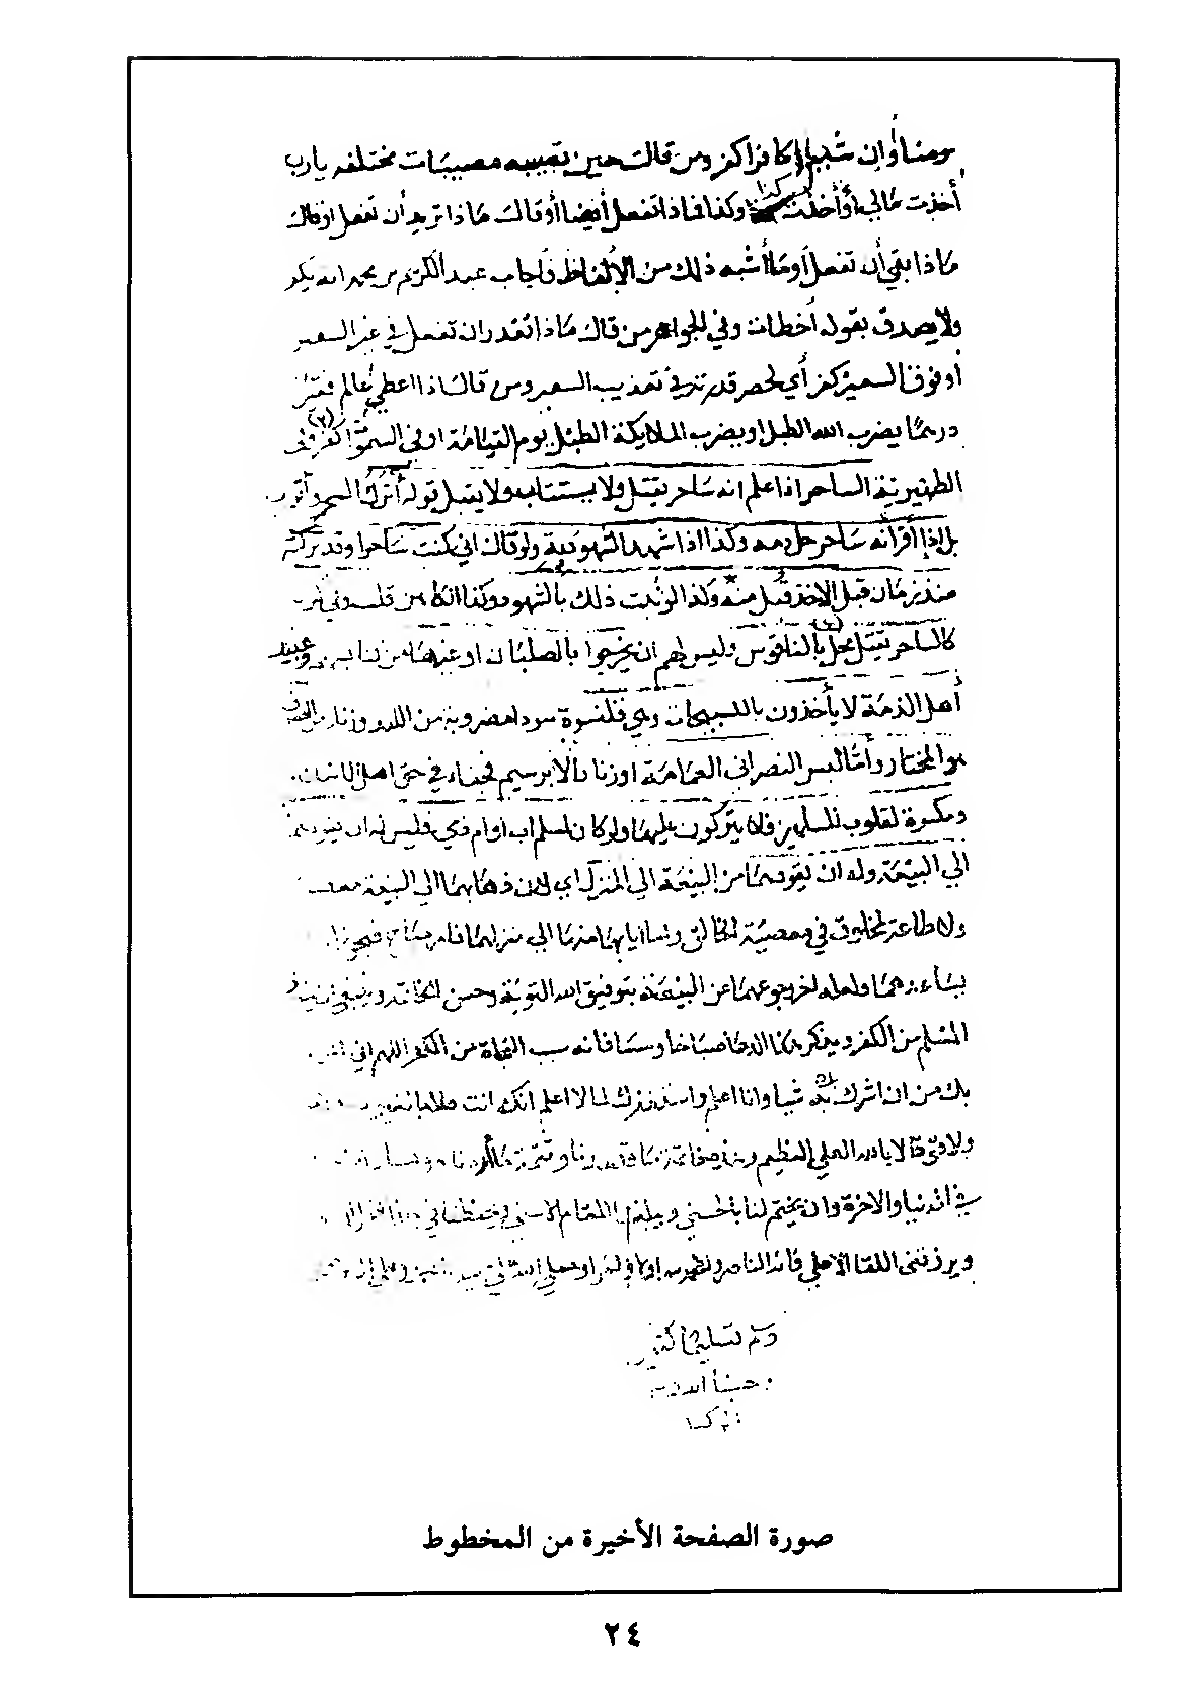 مؤمنا وإن شئت كافرا كفر ومن قال حين تصيبه مصيبات مختلفة يا رب
أخذت مالي وأخذت كذا وكذا فماذا تفعل أيضا أو قال ماذا تريد أن تفعل أو قال
ماذا بقي أن تفعل أو ما أشبه ذلك من الألفاظ فأجاب عبد الكريم بن محمد أنه يكفر
ولا يصدق بقوله أخطأت وفي الجواهر من قال ماذا تقدر ان تفعل في غير السعير
أو فوق السعير كفر أي لحصر قدرته في تعذيب السعير ومن قال اذا اعطي عالم فقير
درهما يضرب الله الطبل او يضرب الملايكة الطبل يوم القيامة او في السموات كفر وفي
الظهيرية الساحر اذا علم انه ساحر يقتل ولا يستتاب ولا يقبل قوله أترك السحر وأتوب
بل إذا أقر أنه ساحر حل دمه وكذا اذا شهد الشهود به ولو قال اني كنت ساحرا وقد تركته
منذ زمان قبل الاخذ قبل منه وكذا لو ثبت ذلك بالشهود وكذا الكاهن
كالساحر يقتل بالناقوس وليس لهم ان يخرجوا بالصلبان او غيرها من كنايسهم وعبيد
أهل الذمة لا يأخذون وهي قلنسوة سودا مضروبة من اللبد وزنار من الصوف
هو المختار وأما لبس النصراني العمامة او زنار الابريسم فجفاء في حق اهل الاسلام
ومكسرة لقلوب المسلمين فلا يتركون عليها ولو كان لمسلم اب او ام ذمي فليس له ان يقودهما
الي البيعة وله ان يقودهما من البيعة الي المنزل اي لان ذهابهما الي البيعة معصية
ولا طاعة لمخلوق في معصية الخالق واما ايابهما منها الي منزلهما فامر مباح فيجوز
مساعدهما ولعله لخروجهما عن البيعة بتوفيق الله التوبة وحسن الخاتمة وينبغي
المسلم من الكفر ويذكر هذا الدعا صباحا ومساء فانه سبب النجاة من الكفر اللهم اني اعوذ
بك من ان اشرك بك شيا وانا اعلم واستغفرك لما لا اعلم انك انت علام الغيوب
ولا قوة الا بالله العلي العظيم
في الدنيا والاخرة وان يختم لنا بالحسني ويبلغنا المقام الاسني
ويرزقني اللقا الاعلي
وسلم تسليما كثيرا
وحسبنا الله
صورة الصفحة الأخيرة من المخطوط
٢٤